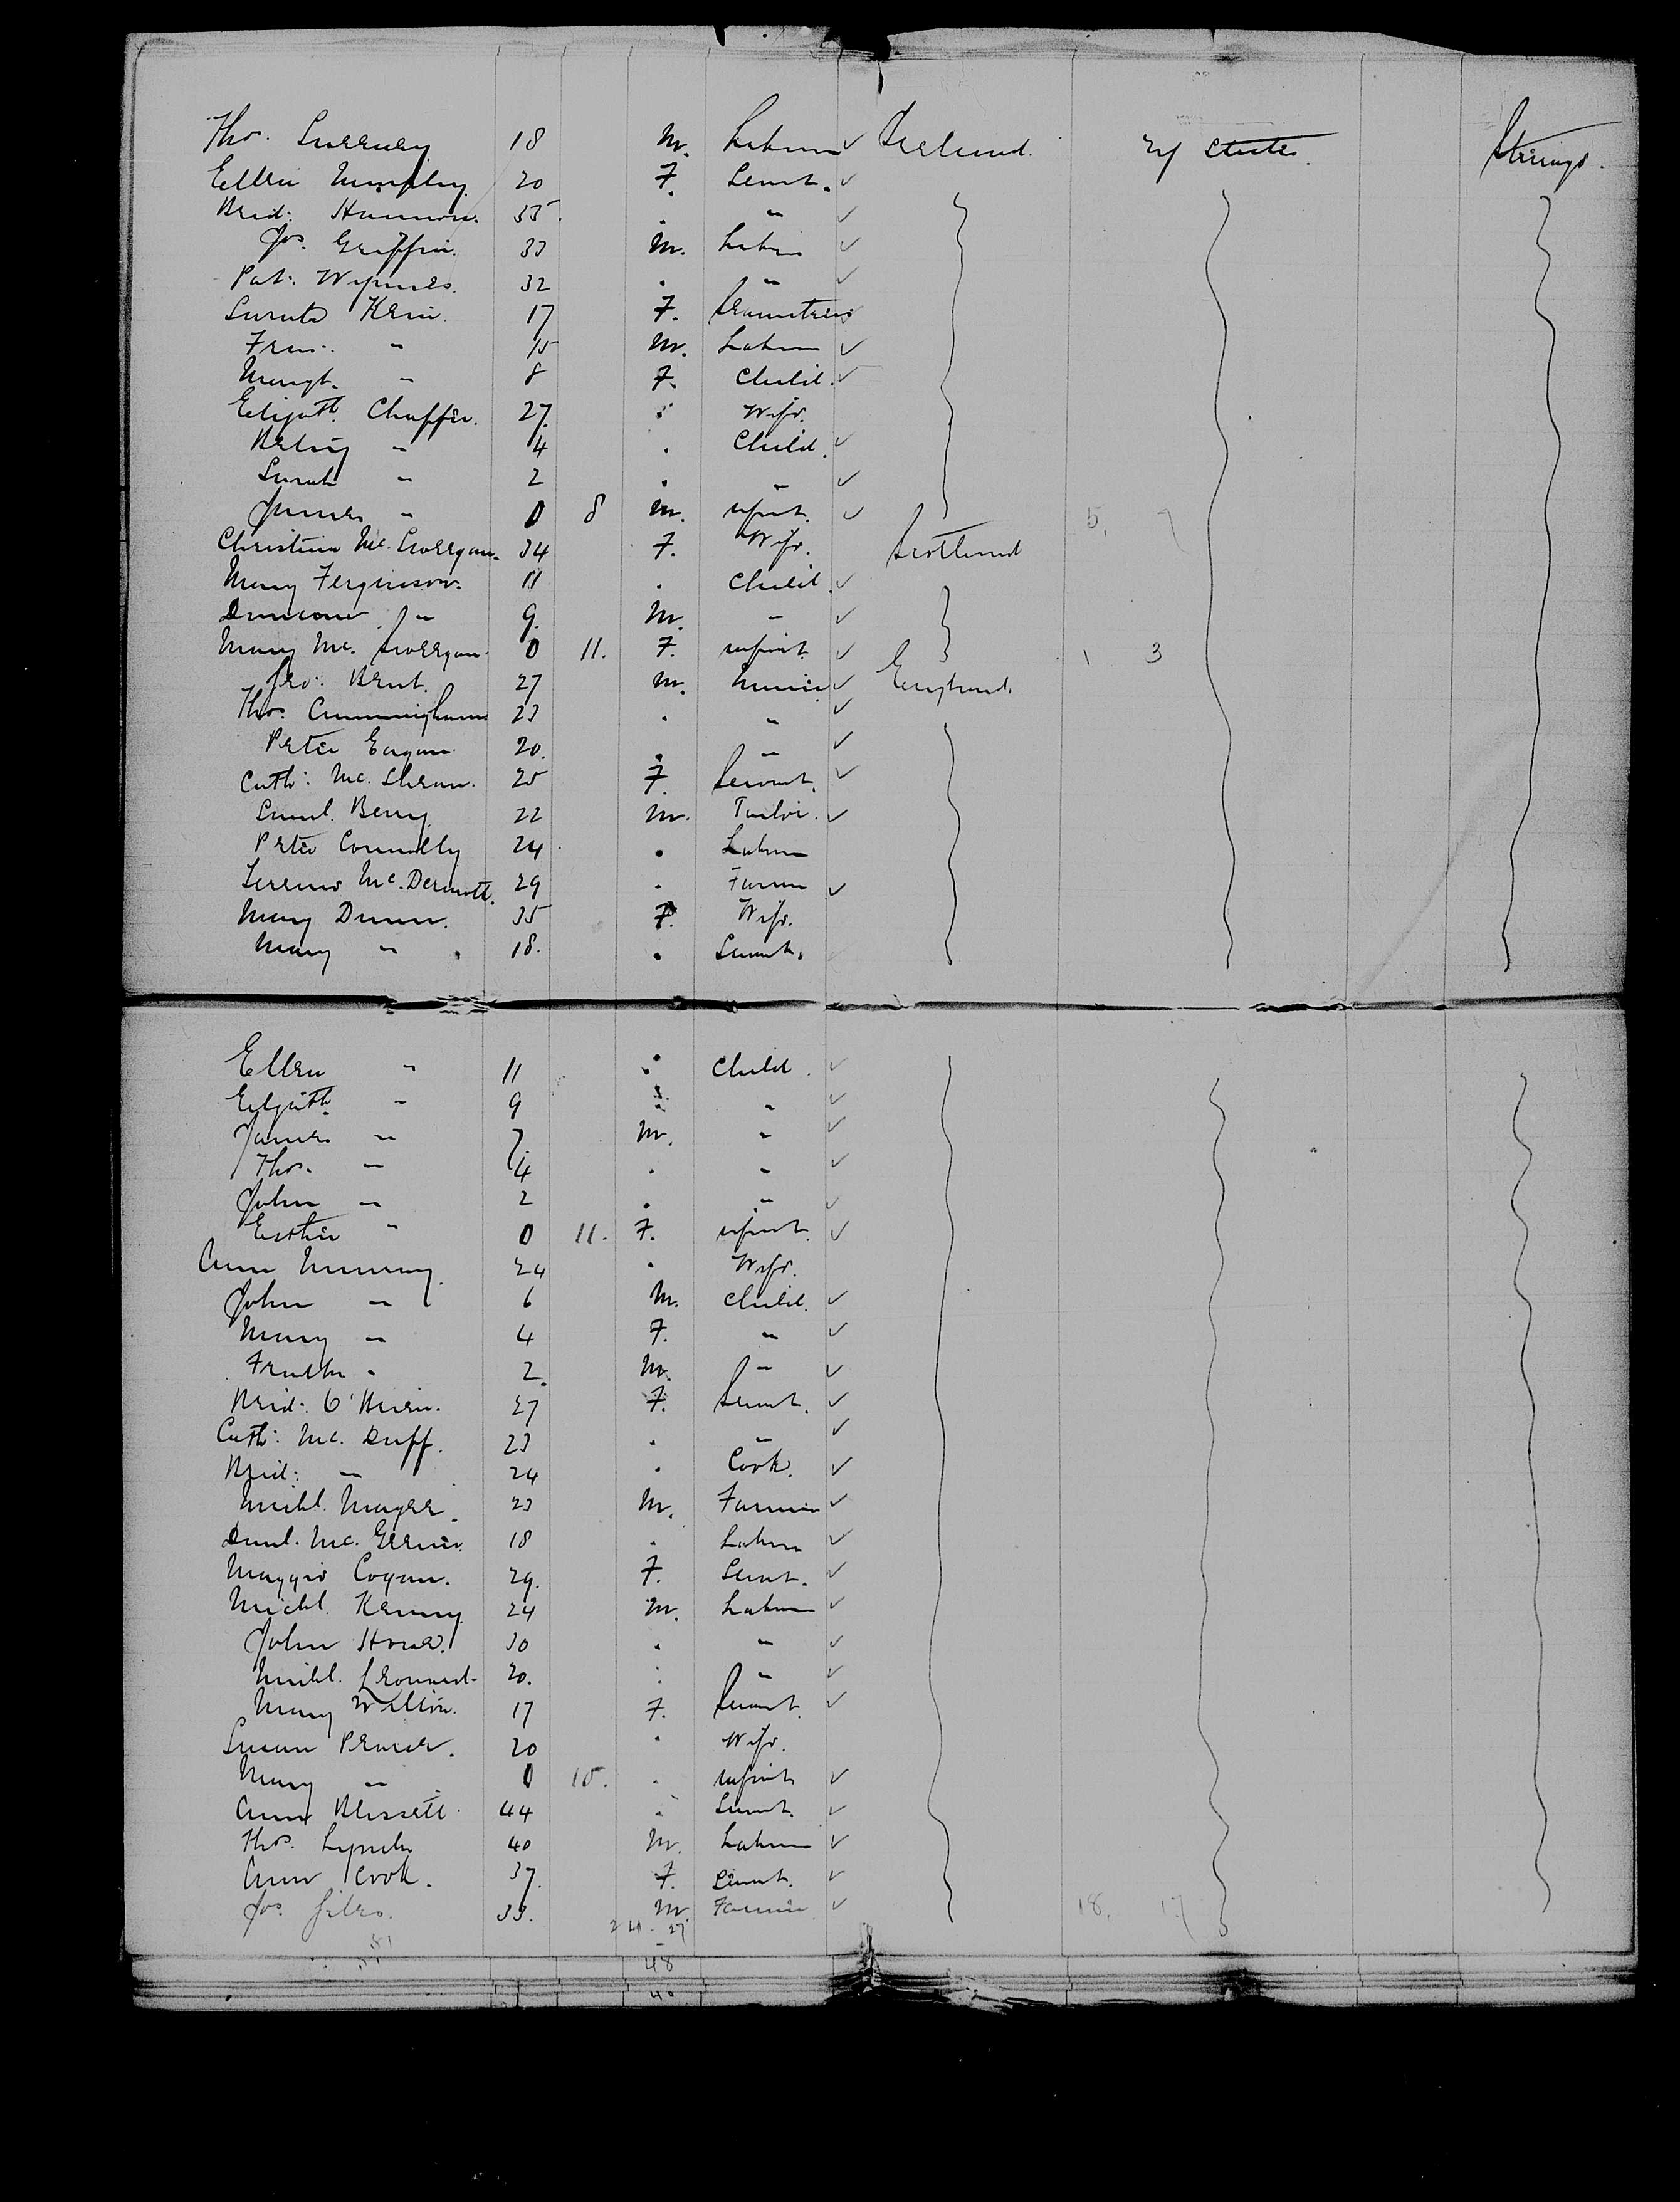 Thos. Sweeney 18 M. Labour ✓ Ireland. U States Steerage.
Ellen Murphy 20 F. Servt. ✓
Brid: Hannon. 35 . " ✓
Jos. Griffin. 33 M. Labour ✓
Pat: Wynnes. 32 . " ✓
Sarah Kern. 17 F. Seamstress
Fras. " 15 M. Labour ✓
Margt. " 8 F. Child. ✓
Elizath. Chaffer. 27. . Wife.
Betsy " 4 . Child. ✓
Sarah " 2 . " ✓
James " 0 8 M. infant. ✓ 5. 7
Christina Mc. 34 F. Wife. Scotland
Mary Ferguson. 11 . Child. ✓
Duncan " 9. M. " ✓
Mary Mc. 0 11. F. infant ✓ 1 3
Geo: Bent. 27 M. Miner ✓ England.
Thos. Cunningham 23 . " ✓
Peter Eagan. 20. . " ✓
Cath: Mc. 25 F. Servant. ✓
Saml. Berry. 22 M. Tailor. ✓
Peter Connolly 24 . Labour
Terence Mc. Dermott. 29 . Farmer ✓
Mary Dunn. 35 F. Wife.
Mary " 18. . Servnt.
Ellen " 11 . Child. ✓
Elizath " 9 . " ✓
James " 7. M. " ✓
Thos. " 4 . " ✓
John " 2 . " ✓
Esther " 0 11. F. infant. ✓
Ann Murray. 24 . Wife.
John " 6 M. Child. ✓
Mary " 4 F. " ✓
" 2. M. " ✓
Brid: O' 27 F. Servnt. ✓
Cath: Mc. Duff. 23 . " ✓
Brid: " 24 . Cook. ✓
Michl. Mayer. 23 M. Farmer ✓
Danl. Mc. 18 . Labour ✓
Maggie Cogan. 29. F. Servt. ✓
Michl. Kenny. 24 M. Labour ✓
John Howe. 30 . " ✓
Michl. Leonard. 20. . " ✓
Mary Wilton. 17 F. Servant. ✓
Susan Pearce. 20 . Wife.
Mary " 0 10. . infant ✓
Ann Blissett. 44 . Servnt. ✓
Thos. Lynch 40 M. Labour ✓
Ann Cook. 37. F. Servnt. ✓
Jos. Giles. 33. M. Farmer ✓ 18. 17
27
48